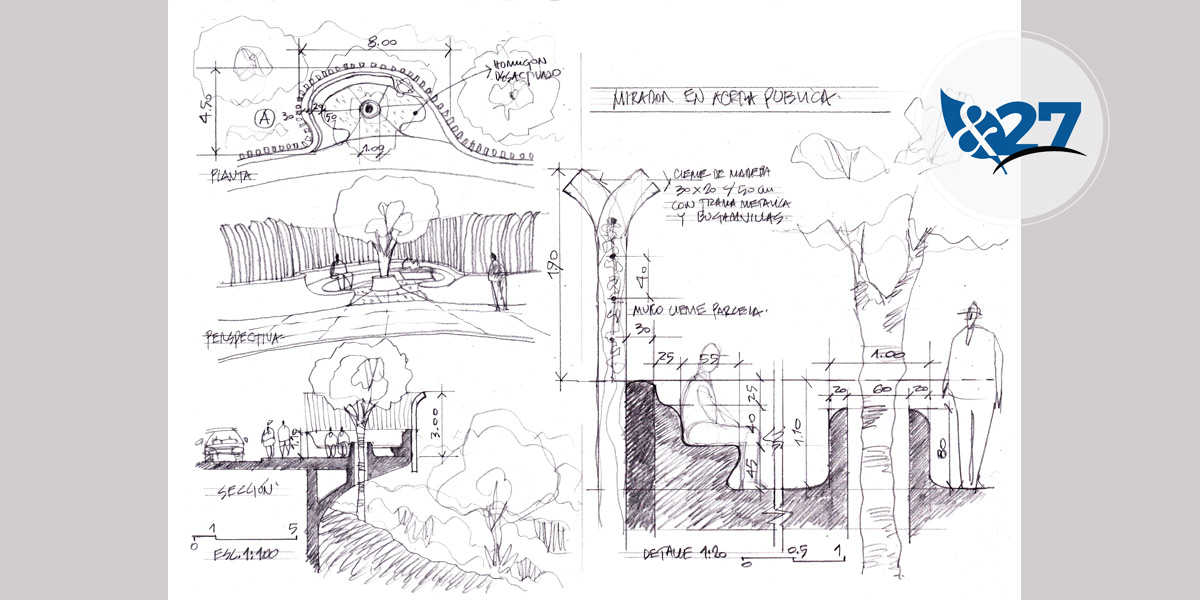 8.00
HORMIGÓN
DESACTIVADO
4.50
A
30
1.00
PLANTA
PERSPECTIVA
3.00
SECCIÓN
0 1 5
ESC. 1:100
MIRADOR EN ACERA PUBLICA.
&27
CIERRE DE MADERA
30x20 c/50 cm
CON TRAMA METALICA
Y BUGANVILLAS.
190
40
MURO CIERRE PARCELA.
30
25 55
25
40
45
1.10
1.00
20 60 20
80
DETALLE 1:20
0 0.5 1